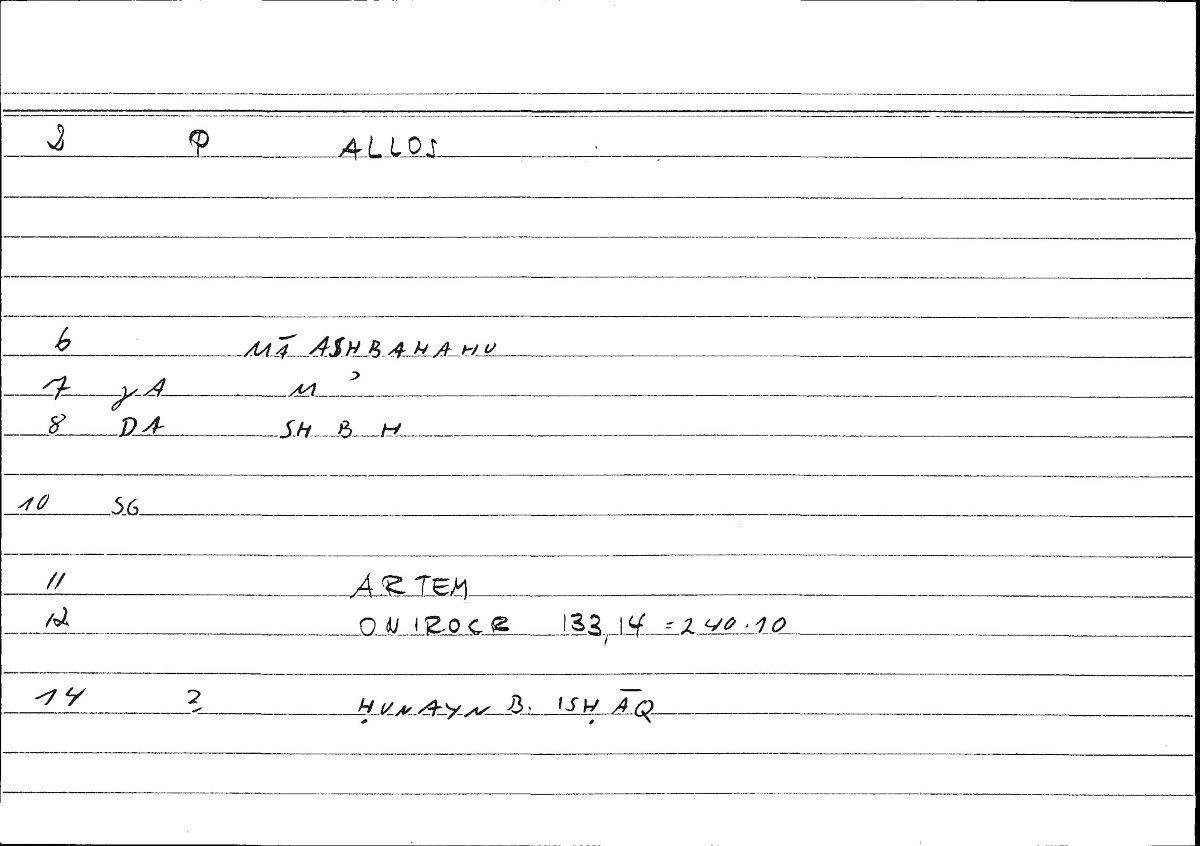 2 φ ALLOS
6 MĀ ASHBAHAHU
7 γA M ʾ
8 DA SH B H
10 SG
11 ARTEM
12 ONIROCR 133,14 = 240.10
14 2 ḤUNAYN B. ISḤĀQ